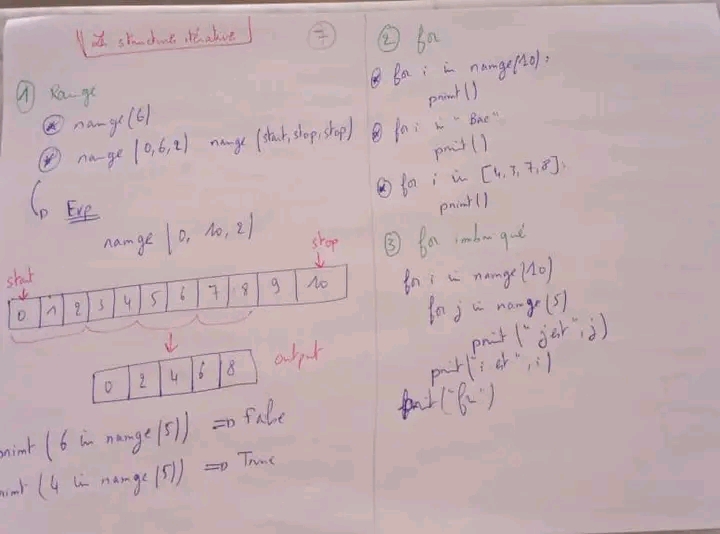 La structure itérative
7
1 Range
range(6)
range (0,6,2) range (start, stop, stop)
Exp
range (0, 10, 2)
start
stop
0 1 2 3 4 5 6 7 8 9 10
0 2 4 6 8
output
print (6 in range (5)) => False
print (4 in range (5)) => True
2 for
for i in range(10):
print()
for i in "Bac"
print()
for i in [4, 3, 7, 8]:
print()
3 for imbriqué
for i in range (10)
for j in range (5)
print (" j est ", j)
print(" i est ", i)
print("fin")